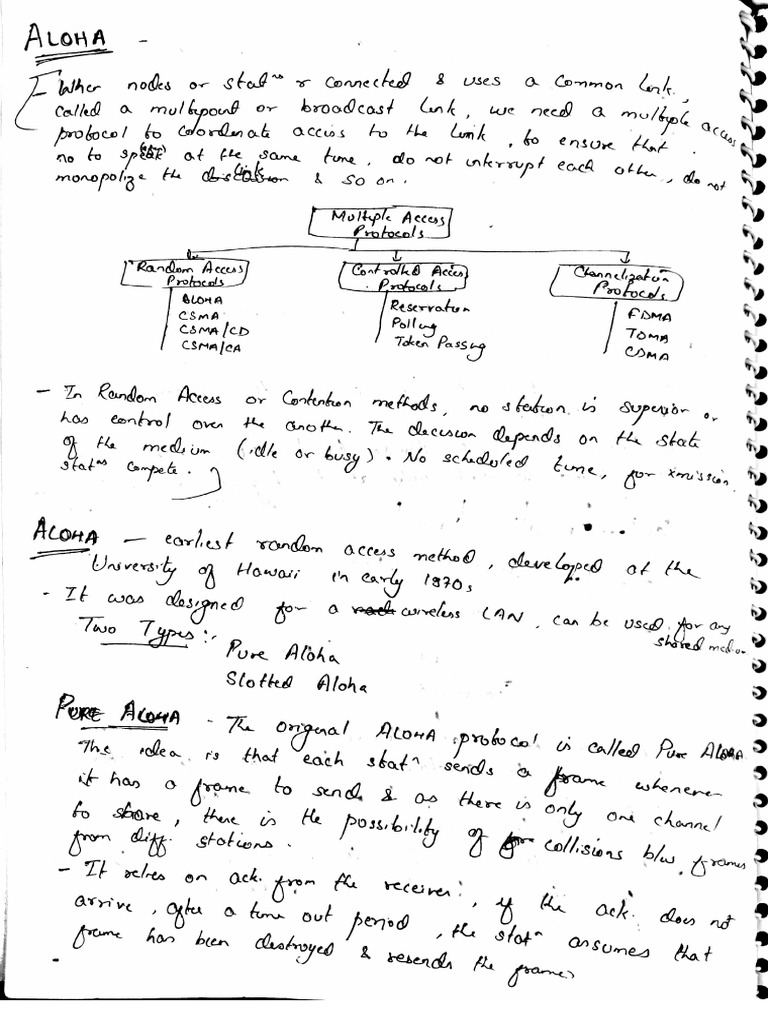 ALOHA -
- When nodes or statns r connected & uses a common link,
called a multipoint or broadcast link, we need a multiple access
protocol to coordinate access to the link, to ensure that
no to speak at the same time, do not interrupt each other, do not
monopolize the link & so on.
Multiple Access
Protocols
Random Access
Protocols
ALOHA
CSMA
CSMA/CD
CSMA/CA
Controlled Access
Protocols
Reservation
Polling
Token Passing
Channelization
Protocols
FDMA
TDMA
CDMA
- In Random Access or Contention methods, no station is superior or
has control over the another. The decision depends on the state
of the medium (idle or busy). No scheduled time, for xmission
statns compete.
ALOHA - earliest random access method, developed at the
University of Hawaii in early 1970s
- It was designed for a wireless LAN, can be used for any
shared medium
Two Types:-
Pure Aloha
Slotted Aloha
PURE ALOHA - The original ALOHA protocol is called Pure ALOHA
The idea is that each statn sends a frame whenever
it has a frame to send & as there is only one channel
to share, there is the possibility of collisions b/w frames
from diff stations.
- It relies on ack. from the receiver, if the ack. does not
arrive, after a time out period, the statn assumes that
frame has been destroyed & resends the frame